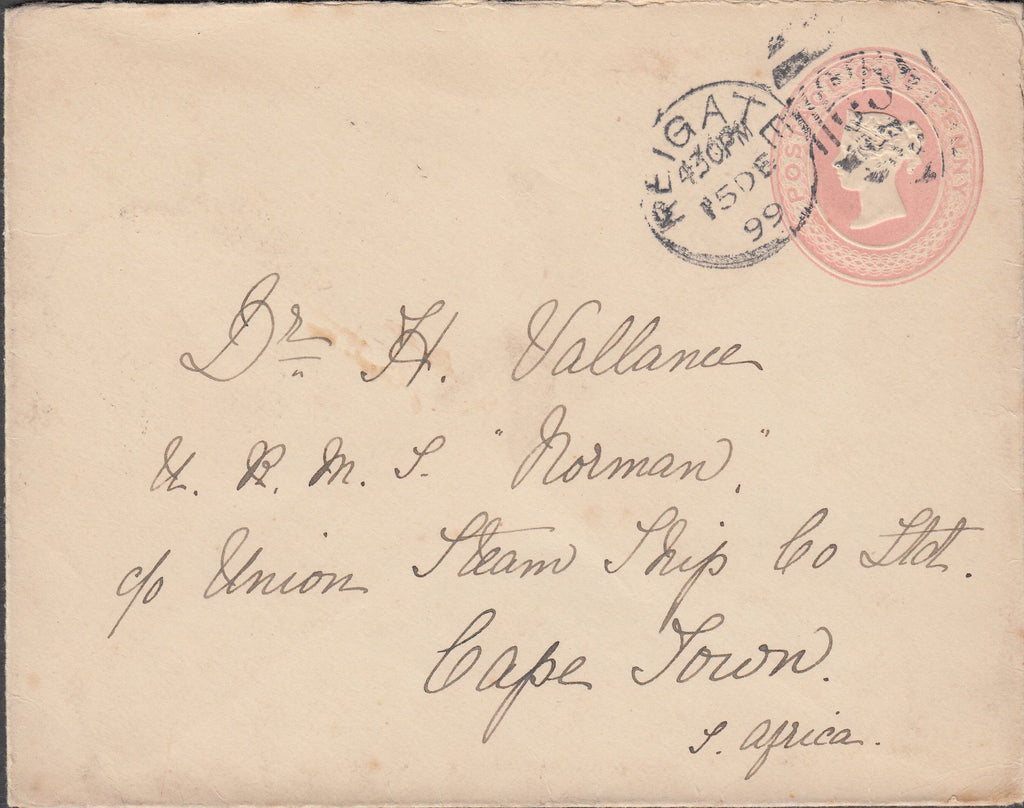 REIGATE
4 30PM
15 DE
99
POSTAGE ONE PENNY
Dr H. Vallance
U. R. M. S. "Norman".
c/o Union Steam Ship Co Ltd.
Cape Town.
S. Africa.